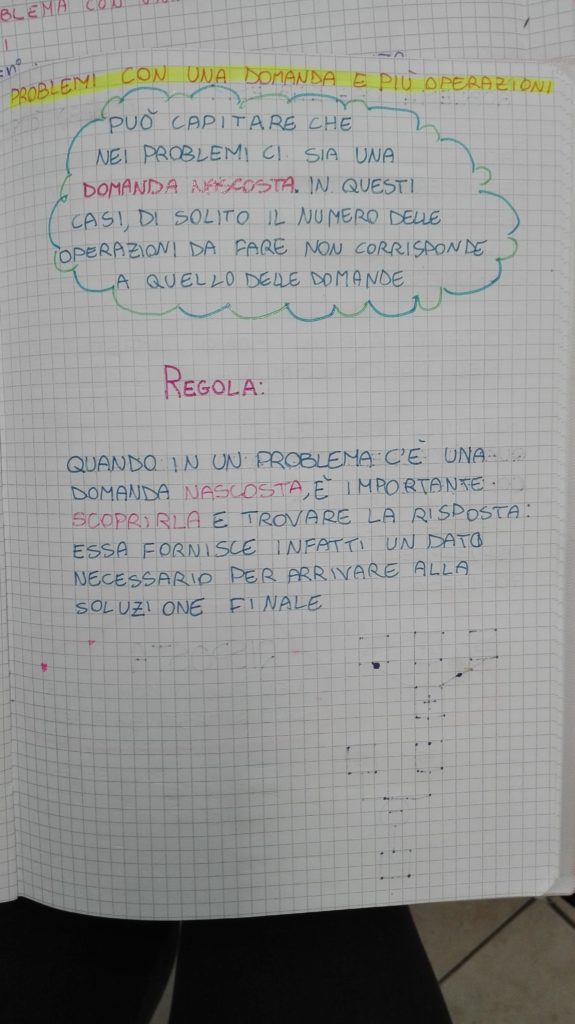 BLEMA CON
n°.
PROBLEMI CON UNA DOMANDA E PIÙ OPERAZIONI
PUÒ CAPITARE CHE
NEI PROBLEMI CI SIA UNA
DOMANDA NASCOSTA. IN QUESTI
CASI, DI SOLITO IL NUMERO DELLE
OPERAZIONI DA FARE NON CORRISPONDE
A QUELLO DELLE DOMANDE
REGOLA:
QUANDO IN UN PROBLEMA C'È UNA
DOMANDA NASCOSTA, È IMPORTANTE
SCOPRIRLA E TROVARE LA RISPOSTA:
ESSA FORNISCE INFATTI UN DATO
NECESSARIO PER ARRIVARE ALLA
SOLUZIONE FINALE